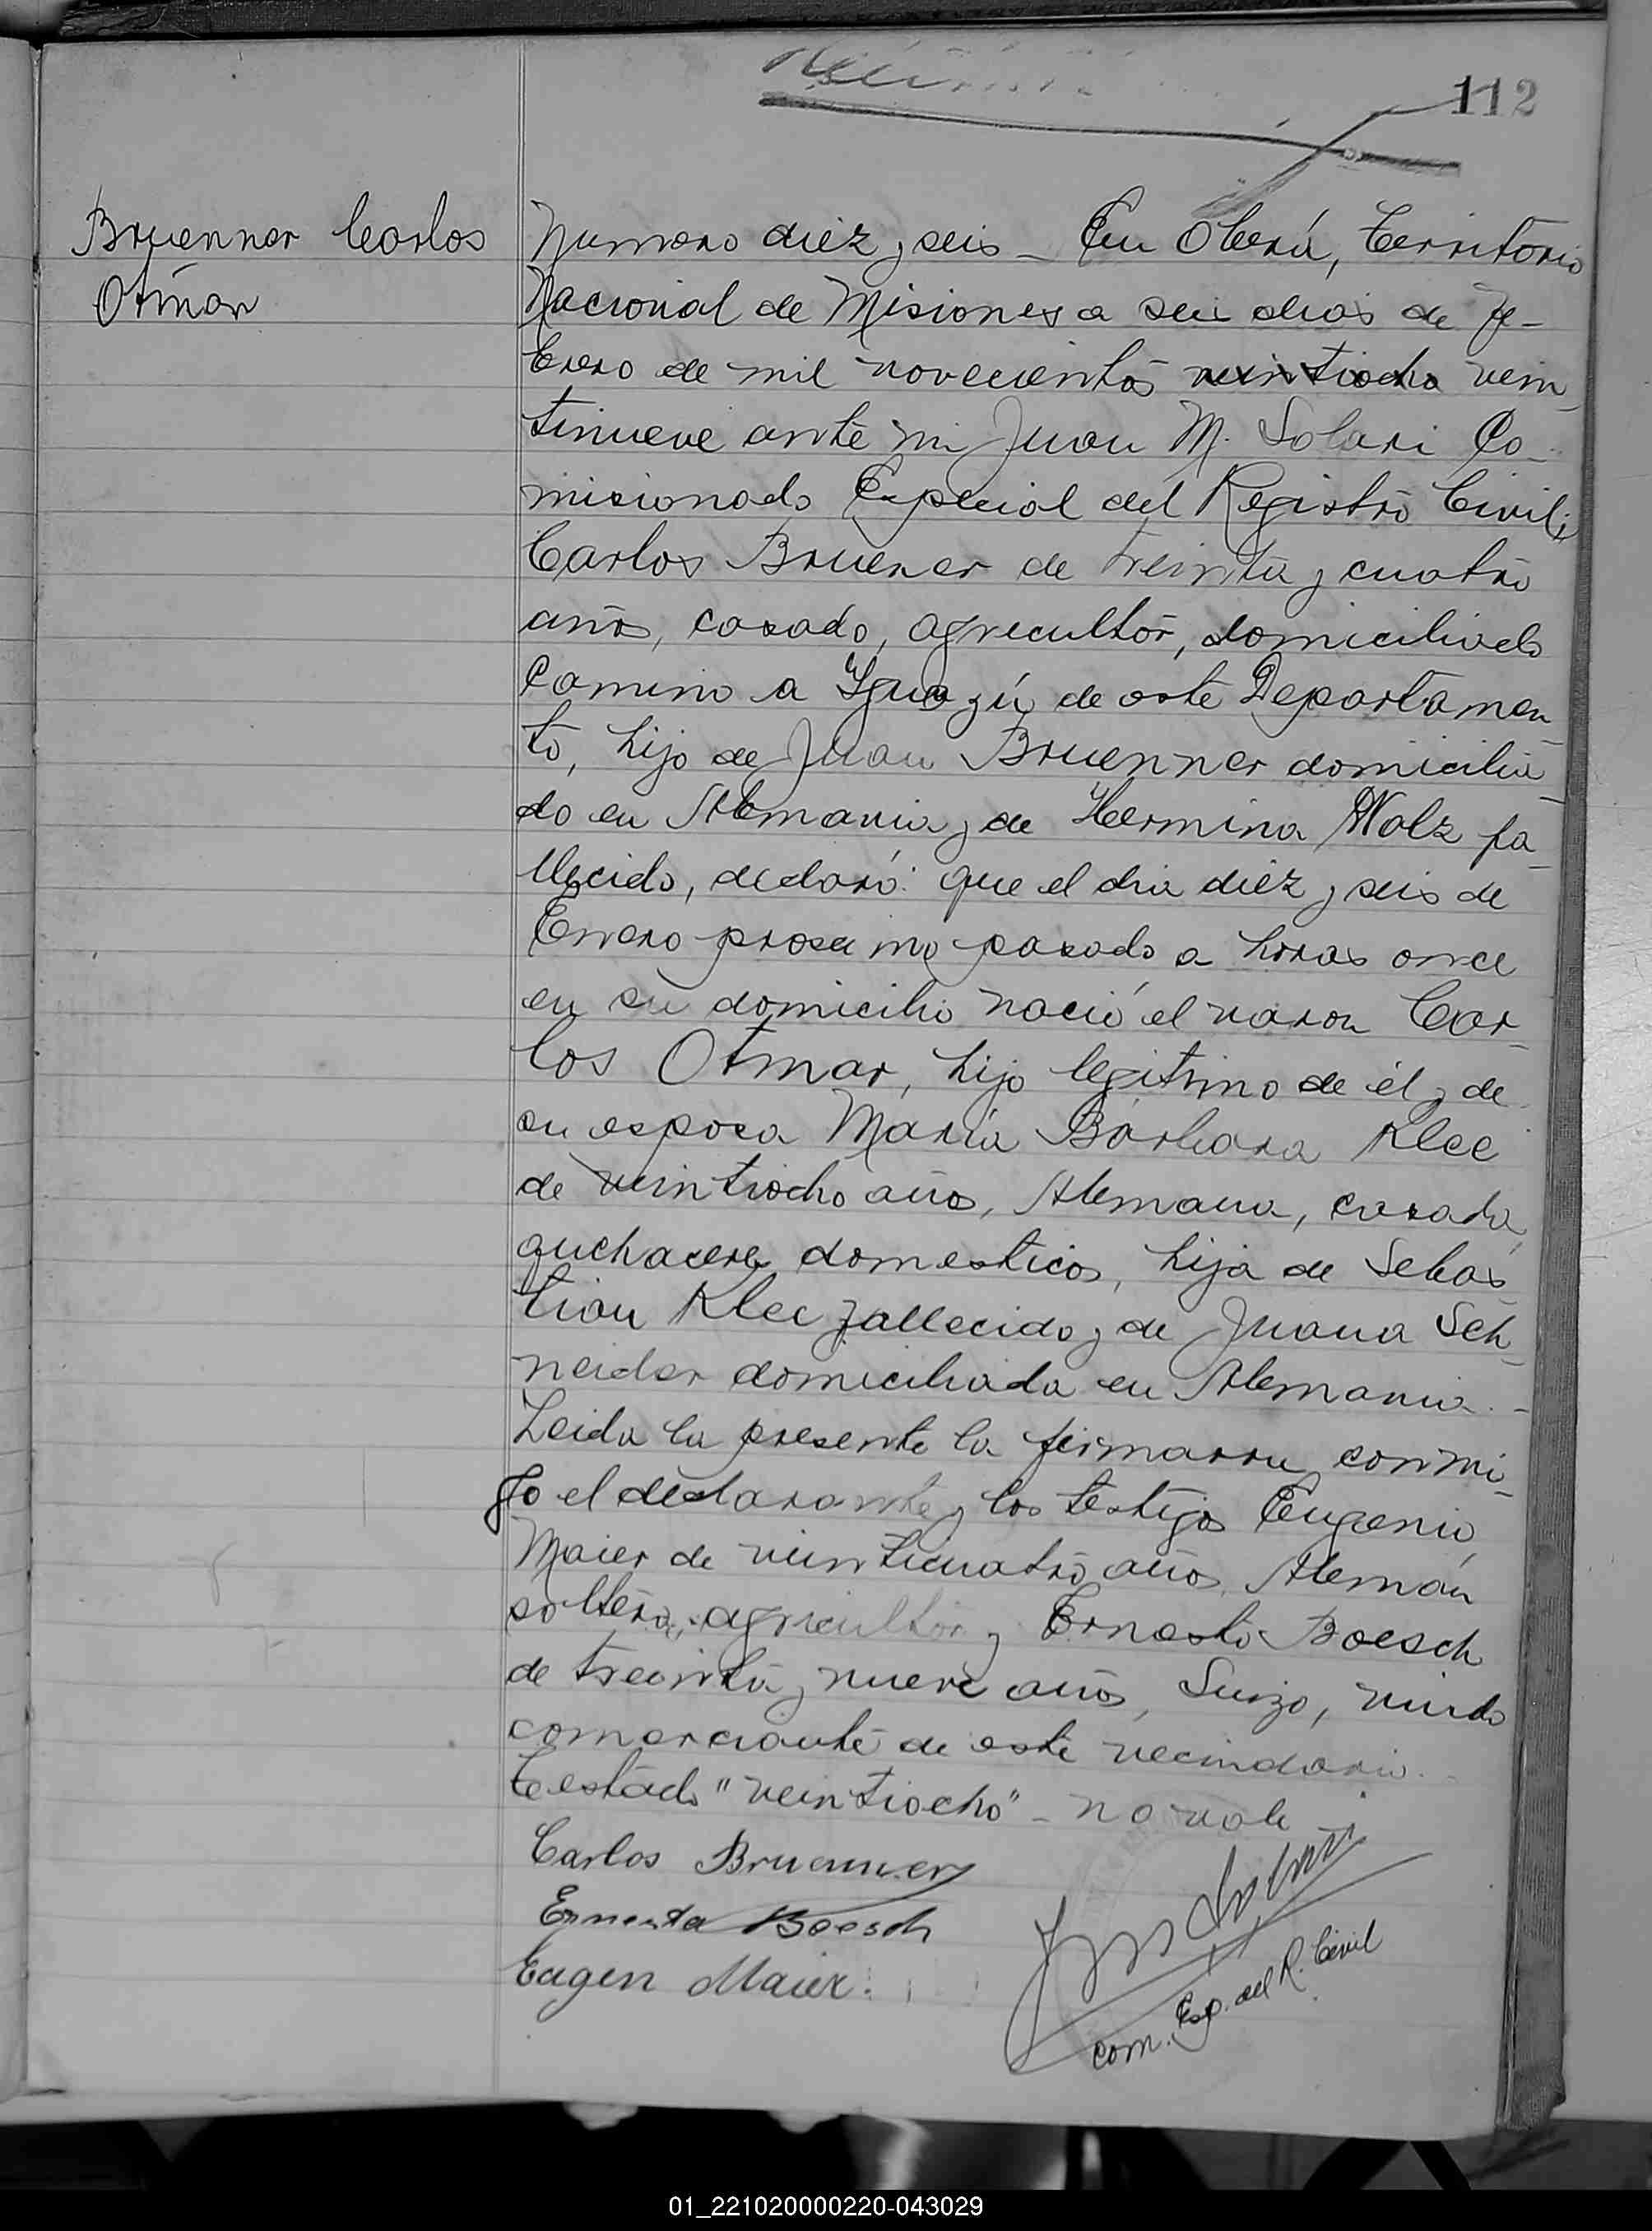 112
Bruenner Carlos
Otmar
Numero diez y seis - En Oberá, Territorio
Nacional de Misiones a seis dias de Fe-
brero de mil novecientos veintiocho vein-
tinueve ante mi Juan M. Solari Co-
misionado Especial del Registro Civil;
Carlos Bruener de treinta y cuatro
años, casado, agricultor, domiciliado
camino a Yguazú de este Departamen-
to, hijo de Juan Bruenner domicilia-
do en Alemania y de Hermina Wolz fa-
llecido, declaró: que el dia diez y seis de
Enero proximo pasado a horas once
en su domicilio nació el varon Car-
los Otmar, hijo legitimo de él y de
su esposa María Bárbara Klee
de veintiocho años, Alemana, casada,
quehaceres domesticos, hija de Sebas-
tian Klee fallecido y de Juana Sch-
neider domiciliada en Alemania. -
Leida la presente la firmaron conmi-
go el declarante y los testigos Eugenio
Maier de veinticuatro años, Alemán
soltero, agricultor y Ernesto Boesch
de treinta y nueve años, Suizo, viudo
comerciante de este vecindario. -
Testado "veintiocho" - no vale
Carlos Bruenner
Ernesto Boesch
Eugen Maier.
Com. Esp. del R. Civil
01_221020000220-043029